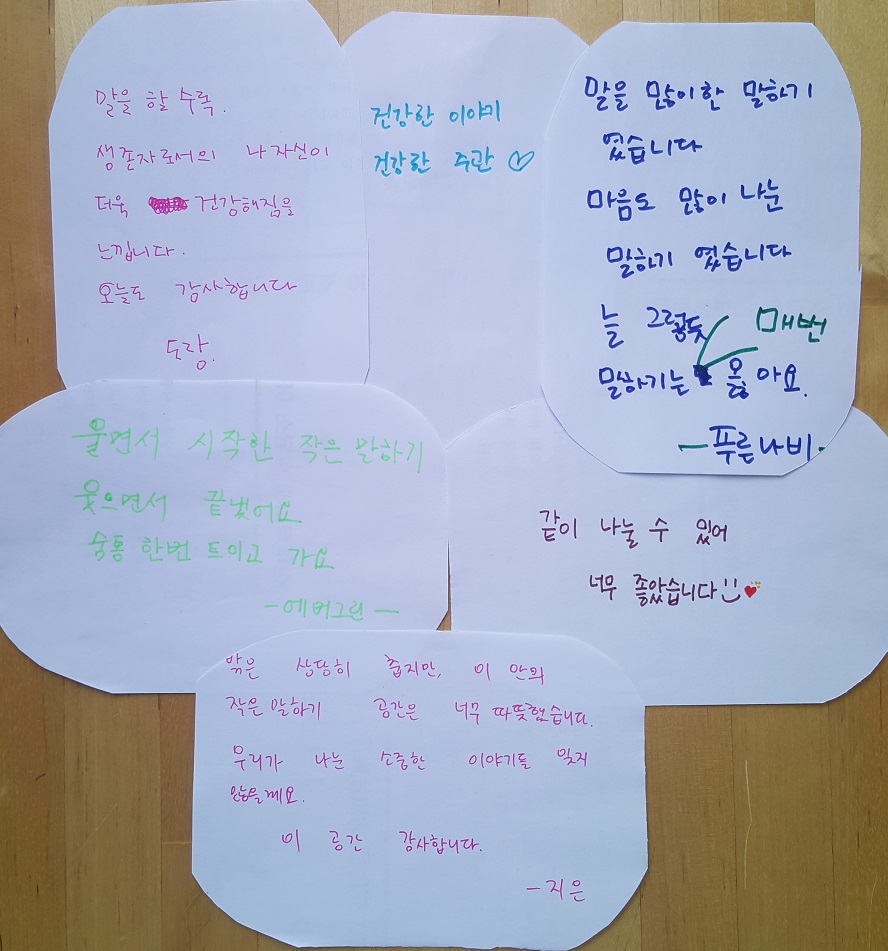 말을 할 수록.
생존자로서의 나 자신이
더욱 건강해짐을
느낍니다.
오늘도 감사합니다
도랑.
건강한 이야기
건강한 주관 ♡
말을 많이한 말하기
였습니다
마음도 많이 나눈
말하기 였습니다
늘 그렇듯 매번
말하기는 옳아요.
-푸른나비-
울면서 시작한 작은 말하기
웃으면서 끝냈어요
숨통 한번 트이고 가요
-에버그린-
같이 나눌 수 있어
너무 좋았습니다
밖은 상당히 춥지만, 이 안의
작은 말하기 공간은 너무 따뜻했습니다.
우리가 나눈 소중한 이야기들 잊지
않을께요.
이 공간 감사합니다.
-지은